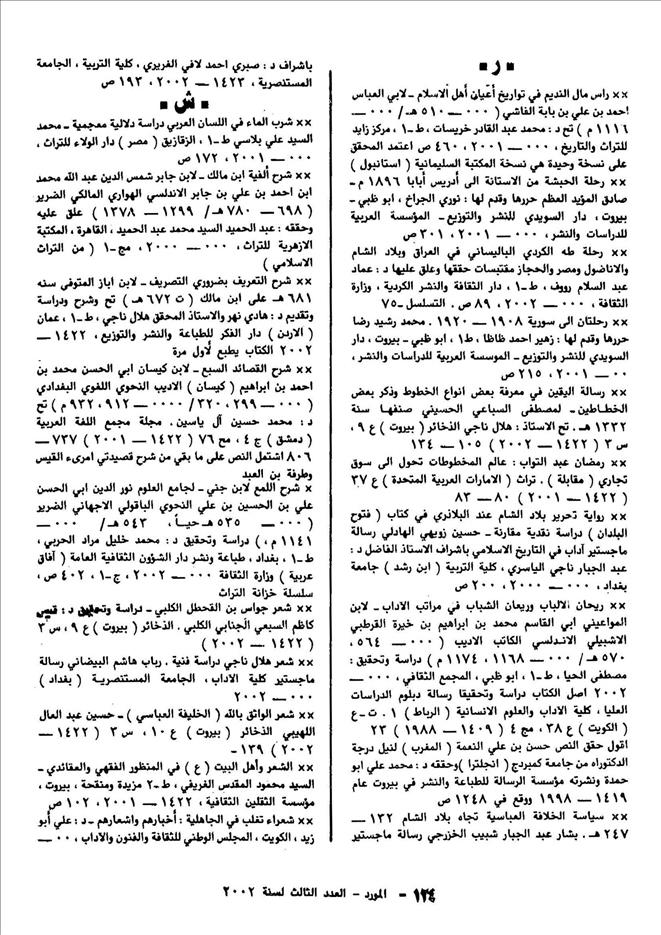 ر
×× راس مال النديم في تواريخ أعيان أهل الاسلام – لابي العباس
احمد بن علي بن بابة القاشي ( ٠٠٠ — ٥١٠ هـ / ٠٠٠ —
١١١٦ م ) تح د : محمد عبد القادر خريسات ، ط–١ ، مركز زايد
للتراث والتاريخ ، ٠٠٠ — ٢٠٠١ ، ٤٦٠ ص اعتمد المحقق
على نسخة وحيدة هي نسخة المكتبة السليمانية ( استانبول )
×× رحلة الحبشة من الاستانة الى أدريس أبابا ١٨٩٦ م –
صادق المؤيد العظم حررها وقدم لها : نوري الجراح ، ابو ظبي –
بيروت ، دار السويدي للنشر والتوزيع – المؤسسة العربية
للدراسات والنشر ، ٠٠٠ — ٢٠٠١ ، ٣٠١ ص
×× رحلة طه الكردي الباليساني في العراق وبلاد الشام
والاناضول ومصر والحجاز مقتبسات حققها وعلق عليها د : عماد
عبد السلام رووف ، ط–١ ، دار الثقافة والنشر الكردية ، وزارة
الثقافة ، ٠٠٠ — ٢٠٠٢ ، ٨٩ ص . التسلسل – ٧٥
×× رحلتان الى سورية ١٩٠٨ — ١٩٢٠ . محمد رشيد رضا
حررها وقدم لها : زهير احمد ظاظا ، ط١ ، ابو ظبي – بيروت ، دار
السويدي للنشر والتوزيع – الموسسة العربية للدراسات والنشر ،
٠٠ — ٢٠٠١ ، ٢١٥ ص
×× رسالة اليقين في معرفة بعض انواع الخطوط وذكر بعض
الخطـاطين – لمصطفى السباعي الحسيني صنفهـا سنة
١٣٣٢ هـ . تح الاستاذ : هلال ناجي الذخائر ( بيروت ) ع ٩ ،
س ٣ ( ١٤٢٢ — ٢٠٠٢ ) ١٠٥ — ١٣٤
×× رمضان عبد التواب : عالم المخطوطات تحول الى سوق
تجاري ( مقابلة ) . تراث ( الامارات العربية المتحدة ) ع ٣٧
( ١٤٢٢ — ٢٠٠١ ) ٨٠ — ٨٣
×× رواية تحرير بلاد الشام عند البلاذري في كتابة ( فتوح
البلدان ) دراسة نقدية مقارنة – حسين زويهي الهادلي رسالة
ماجستير آداب في التاريخ الاسلامي باشراف الاستاذ الفاضل د :
عبد الجبار ناجي الياسري ، كلية التربية ( ابن رشد ) جامعة
بغداد ، ٠٠٠ — ٢٠٠٠ ، ٢٠٠ ص
×× ريحان الالباب وريعان الشباب في مراتب الاداب – لابن
المواعيني ابي القاسم محمد بن ابراهيم بن خيرة القرطبي
الاشبيلي الاندلسي الكاتب الاديب ( ٠٠٠ — ٥٦٤ ،
٥٧٠ هـ / ٠٠٠ — ١١٦٨ ، ١١٧٤ م ) دراسة وتحقيق :
مصطفى الحيا ، ط–١ ، ابو ظبي ، المجمع الثقافي ، ٠٠٠ —
٢٠٠٢ اصل الكتاب دراسة وتحقيقا رسالة دبلوم الدراسات
العليا ، كلية الاداب والعلوم الانسانية ( الرباط ) ١ . ت – ع
( الكويت ) ع ٣٨ ، مج ٤ ( ١٤٠٩ — ١٩٨٨ ) ٢٣
اقول حقق النص حسن بن علي النعمة ( المغرب ) لنيل درجة
الدكتوراه من جامعة كمبردج ( انجلترا ) وحققه د : محمد علي ابو
حمدة ونشرته مؤسسة الرسالة للطباعة والنشر في بيروت عام
١٤١٩ — ١٩٩٨ ووقع في ١٢٤٨ ص
×× سياسة الخلافة العباسية تجاه بلاد الشام ١٣٢ —
٢٤٧ هـ . بشار عبد الجبار شبيب الخزرجي رسالة ماجستير
باشراف د : صبري احمد لافي الغريري ، كلية التربية ، الجامعة
المستنصرية ، ١٤٢٣ — ٢٠٠٢ ، ١٩٣ ص
ش
×× شرب الماء في اللسان العربي دراسة دلالية معجمية – محمد
السيد علي بلاسي ط–١ ، الزقازيق ( مصر ) دار الولاء للتراث ،
٠٠٠ — ٢٠٠١ ، ١٧٢ ص
×× شرح ألفية ابن مالك – لابن جابر شمس الدين عبد الله محمد
ابن احمد بن علي بن جابر الاندلسي الهواري المالكي الضرير
( ٦٩٨ — ٧٨٠ هـ / ١٢٩٩ — ١٣٧٨ ) علق عليه
وحققه : عبد الحميد السيد محمد عبد الحميد ، القاهرة ، المكتبة
الازهرية للتراث ، ٠٠٠ — ٢٠٠٠ ، مج–١ ( من التراث
الاسلامي )
×× شرح التعريف بضروري التصريف – لابن اياز المتوفي سنه
٦٨١ هـ على ابن مالك ( ت ٦٧٢ هـ ) تح وشرح ودراسة
وتقديم د : هادي نهر والاستاذ المحقق هلال ناجي ، ط–١ ، عمان
( الاردن ) دار الفكر للطباعة والنشر والتوزيع ، ١٤٢٢ —
٢٠٠٢ الكتاب يطبع لاول مرة
×× شرح القصائد السبع – لابن كيسان ابي الحسن محمد بن
احمد بن ابراهيم ( كيسان ) الاديب النحوي اللغوي البغدادي
( ٠٠٠ — ٢٩٩ ، ٣٢٠ / ٠٠٠ — ٩١٢ ، ٩٣٢ م ) تح
د : محمد حسين آل ياسين . مجلة مجمع اللغة العربية
( دمشق ) ج ٤ ، مج ٧٦ ( ١٤٢٢ — ٢٠٠١ ) ٧٣٧ —
٨٠٦ اشتمل النص على ما بقي من شرح قصيدتي امرىء القيس
وطرفة بن العبد
× شرح اللمع لابن جني – لجامع العلوم نور الدين ابي الحسن
علي بن الحسين بن علي النحوي الباقولي الاجهاني الضرير
( ٠٠٠ — ٥٣٥ هـ حيـاً ، ٥٤٣ هـ / ٠٠٠ —
١١٤١ م ، ) دراسة وتحقيق د : محمد خليل مراد الحربي ،
ط–١ ، بغداد ، طباعة ونشر دار الشؤون الثقافية العامة ( آفاق
عربية ) وزارة الثقافة ٠٠٠ — ٢٠٠٢ ، ج–١ ، ٤٠٢ ص ،
سلسلة خزانة التراث
×× شعر جواس بن القحطل الكلبي – دراسة وتحقيق د : قيس
كاظم السبعي الجنابي الكلبي . الذخائر ( بيروت ) ع ٩ ، س ٣
( ١٤٢٢ — ٢٠٠٢ )
×× شعر هلال ناجي دراسة فنية . رباب هاشم البيضاني رسالة
ماجستير كلية الاداب ، الجامعة المستنصرية ( بغداد )
٠٠٠ — ٢٠٠٢
×× شعر الواثق بالله ( الخليفة العباسي ) – حسين عبد العال
اللهيبي الذخائر ( بيروت ) ع ١٠ ، س ٣ ( ١٤٢٢ —
٢٠٠٢ ) ١٣٩ –
×× الشعر وأهل البيت ( ع ) في المنظور الفقهي والعقائدي –
السيد محمود المقدس الغريفي ، ط–٢ مزيدة ومنقحة ، بيروت ،
مؤسسة الثقلين الثقافية ، ١٤٢٢ — ٢٠٠١ ، ١٠٢ ص
×× شعراء تغلب في الجاهلية : أخبارهم واشعارهم – د : علي أبو
زيد ، الكويت ، المجلس الوطني للثقافة والفنون والآداب ، ٠٠ —
١٣٤ – المورد – العدد الثالث لسنة ٢٠٠٢